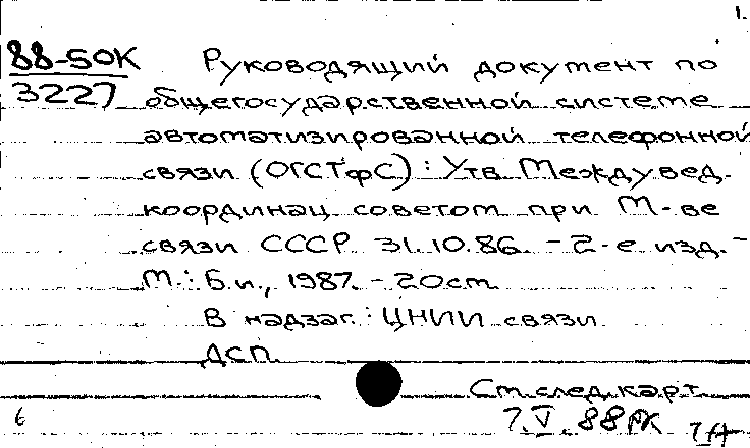 1.
88-50К Руководящий документ по
3227 общегосударственной системе
автоматизированной телефонной
связи (ОГСТфС) : Утв. Междувед.
координац. советом при М-ве
связи СССР 31.10.86. - 2-е изд. -
М.: Б.и., 1987. - 20см.
В надзаг.: ЦНИИ связи.
ДСП.
См.след.карт.
6 7.V.88